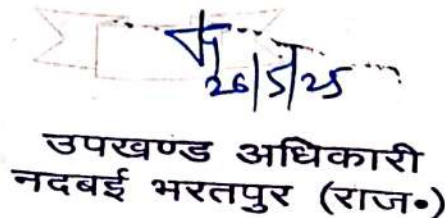 26/5/25
उपखण्ड अधिकारी
नदबई भरतपुर (राज॰)